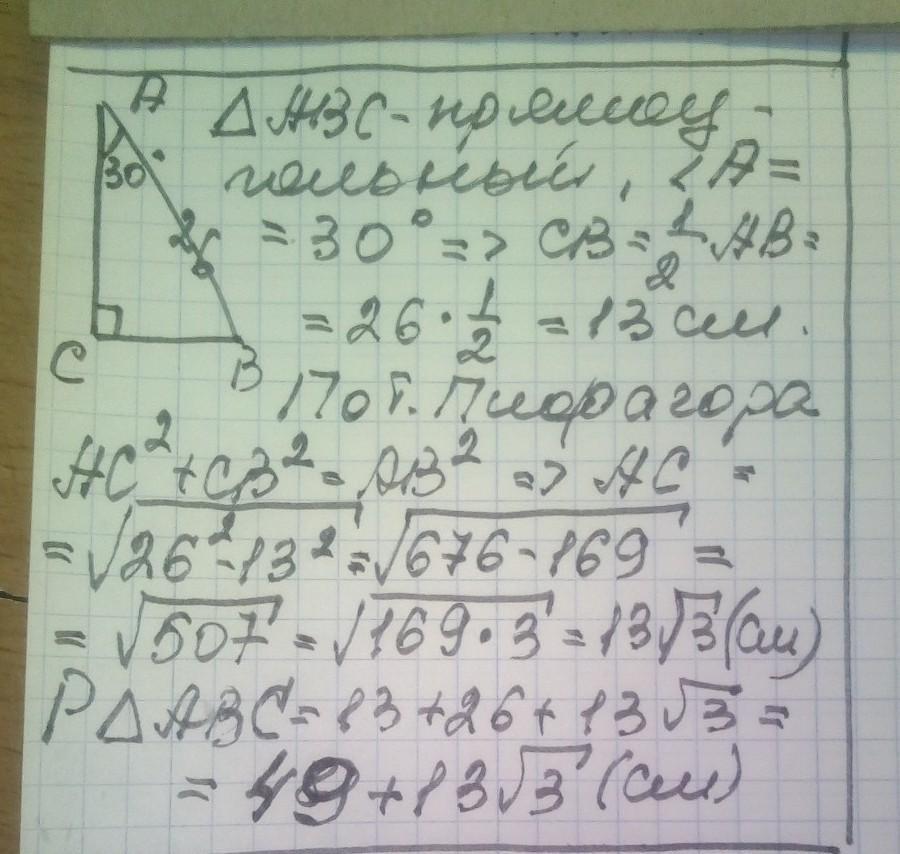 A
30°
26
C
B
△ABC-прямоу-
гольный, <A=
= 30° => CB = 1/2 AB =
= 26 · 1/2 = 13 см.
По т. Пифагора
AC² + CB² = AB² => AC =
= √26² - 13² = √676 - 169 =
= √507 = √169 · 3 = 13√3 (см)
P △ABC = 13 + 26 + 13√3 =
= 49 + 13√3 (см)